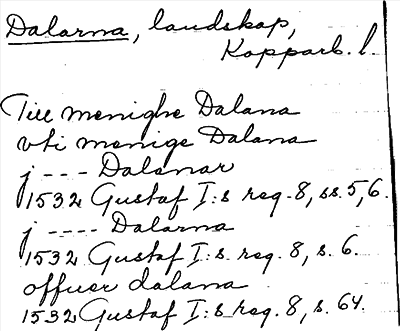 Dalarna, landskap,
Kopparb. l.
Till menighe Dalana
vti menige Dalana
j --- Dalanar
1532 Gustaf I:s reg. 8, ss. 5, 6.
j ---- Dalarna
1532 Gustaf I:s reg. 8, s. 6.
offuer dalana
1532 Gustaf I:s reg. 8, s. 64.